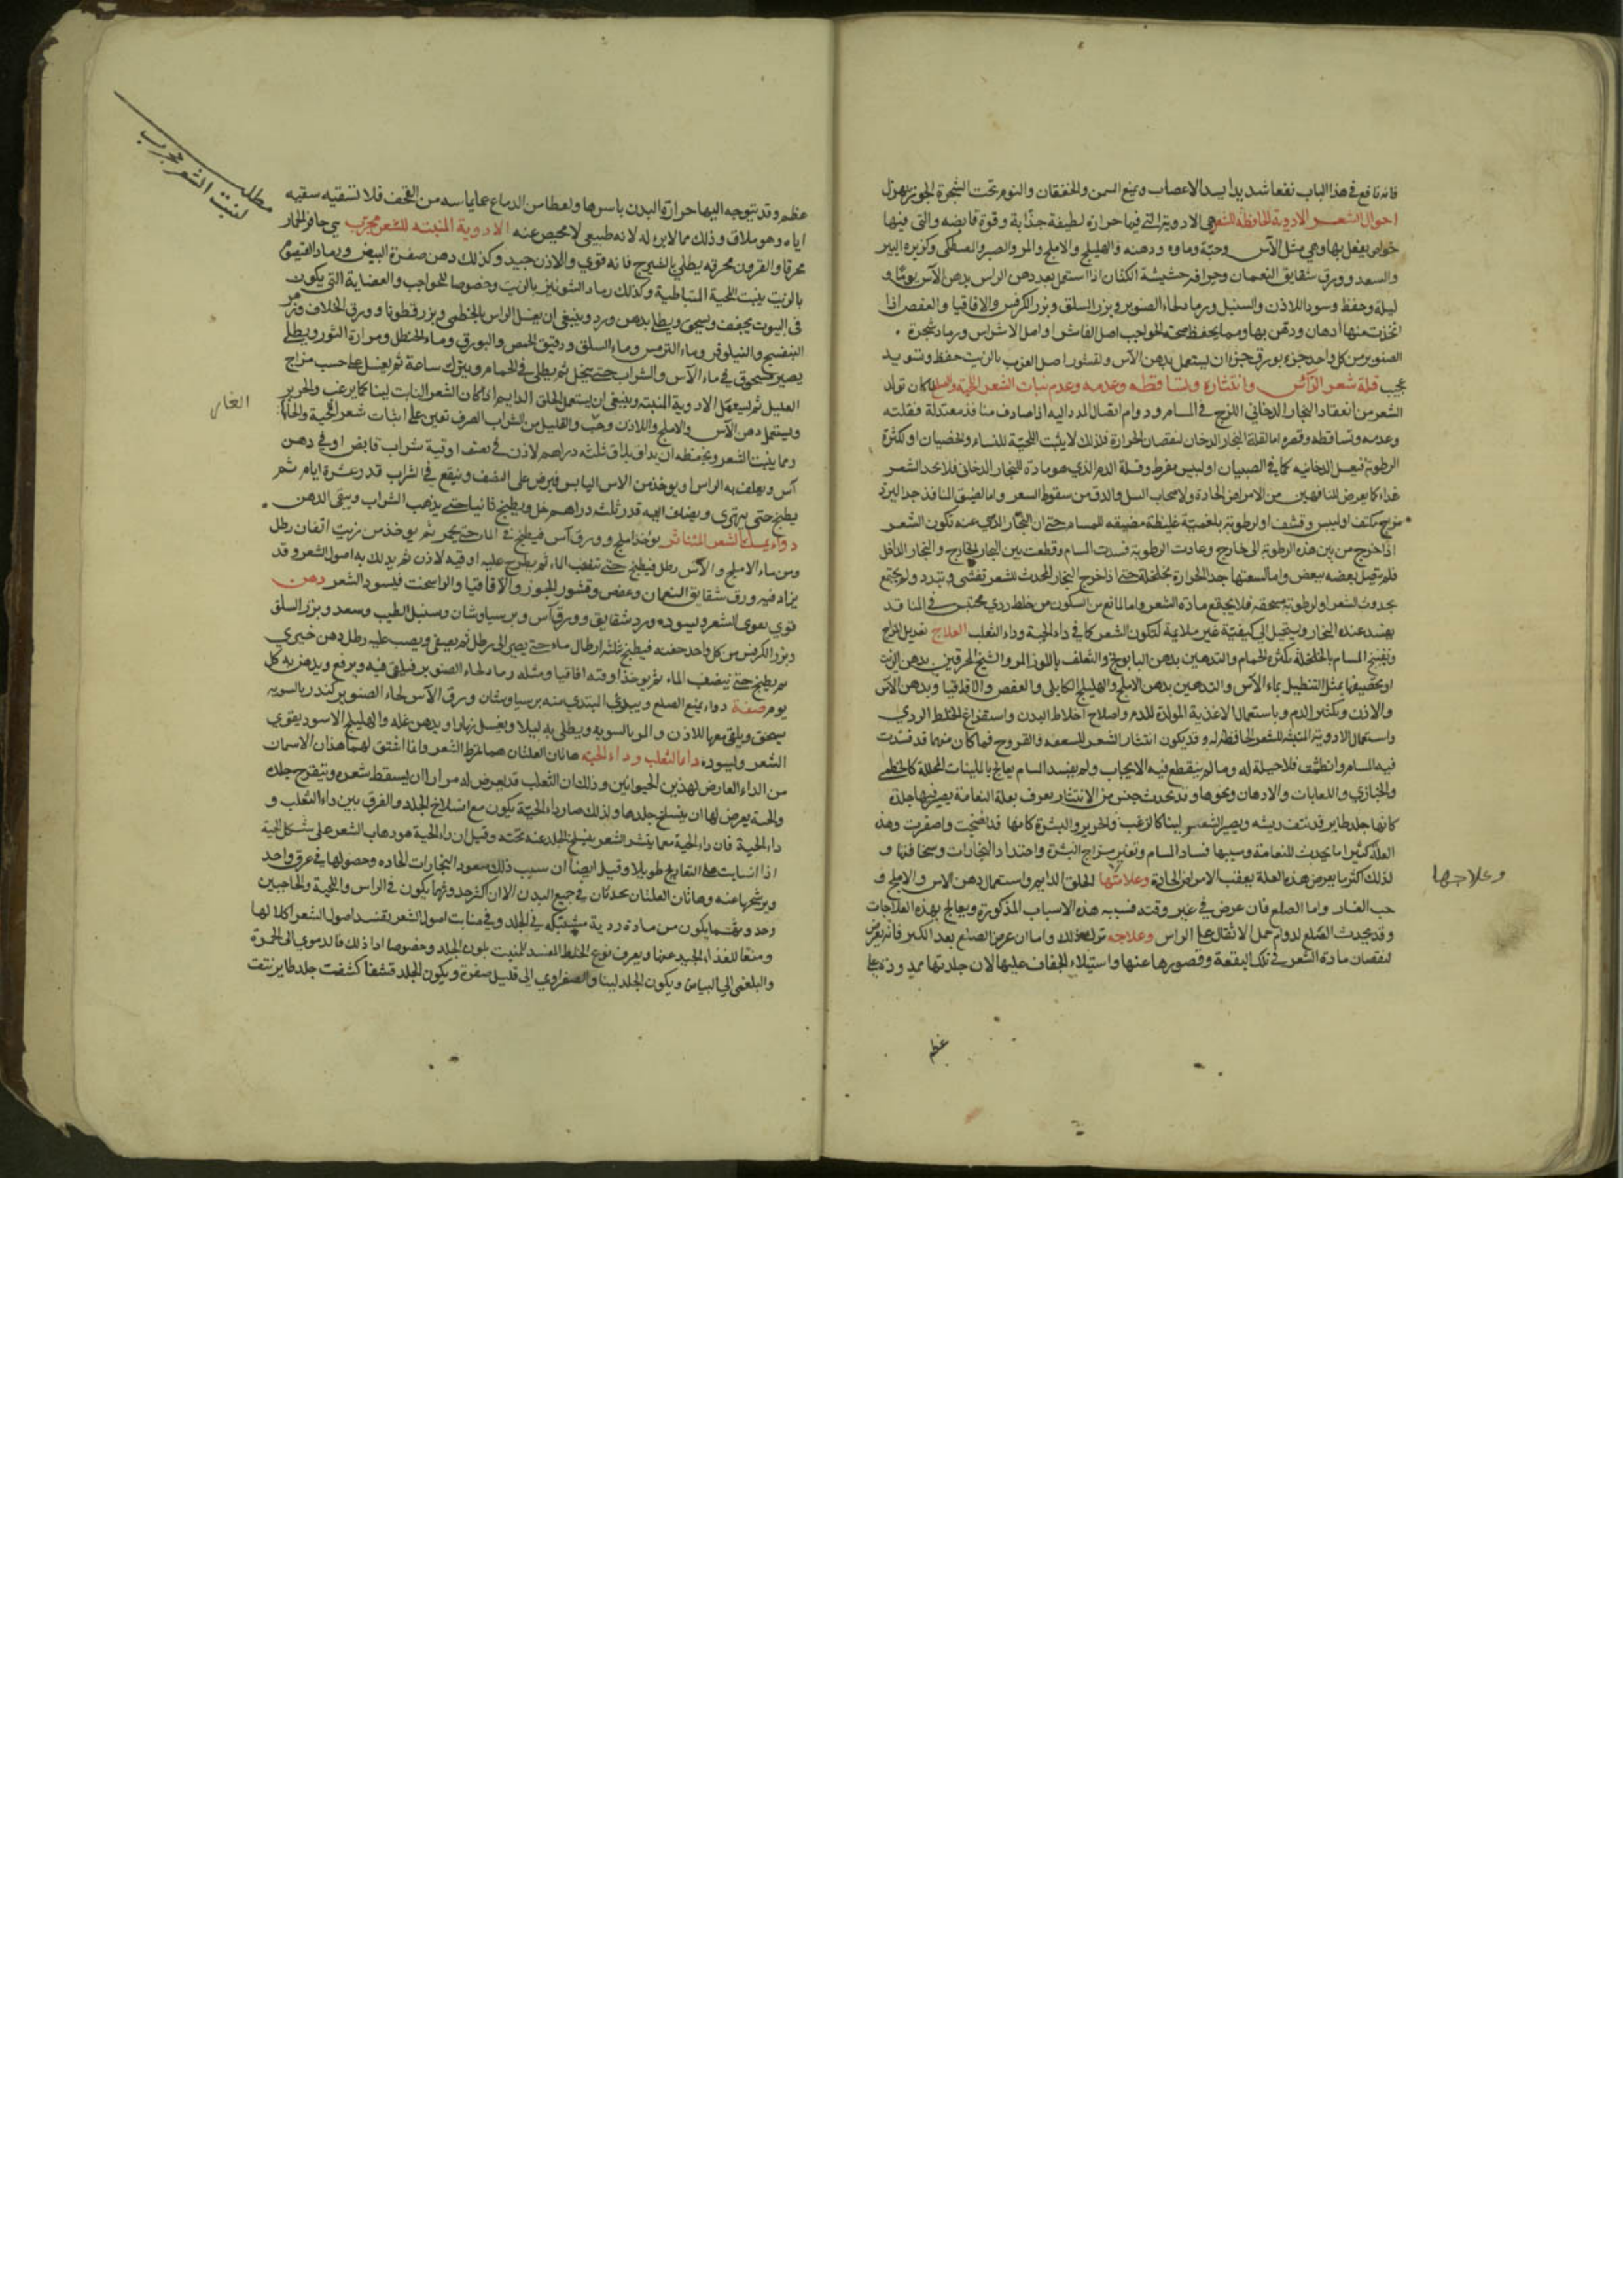 فانه نافع في هذا الباب نفعا شديدا يسد الاعصاب ويمنع السمن والخفقان والنوم تحت الشجرة الجوز يهزل
احوال الشعر الادوية الحافظة للشعر هي الادوية التي فيها حرارة لطيفة جذابة وقوة قابضه والتي فيها
خواص يفعل بها وهي مثل الآس وحبّه وماوه ودهنه والهليلج والاملج والمر والصبر والمصطكى وكزبرة البير
والسعد وورق شقايق النعمان وحراقة حشيشة الكتان اذا استعمل بعد دهن الراس بدهن الآس يوما و
ليلة وحفظ وسود اللاذن والسنبل ورماد لحاء الصنوبر وبزر السلق وبزر الكرفس والاقاقيا والعفص اذا
اتخذت منها ادهان ودهن بها ومما يحفظ صحة الحواجب اصل الفاشرا واصل الاشراس ورماد شجرة
الصنوبر من كل واحد جزء بورق جزء ان يستعمل بدهن الآس ولقشور اصل الغرب بالزيت حفظ وتسويد
عجيب قلة شعر الرأس وانتثاره وتساقطه وعدمه وعدم نبات الشعر اللحية والصلع لما كان تولد
الشعر من انعقاد البخار الدخاني اللزج في المسام ودوام اتصال المدد اليه اذا صادف منافذ معتدلة فقلته
وعدمه وتساقطه وقصره اما لقلة البخار الدخان لنقصان الحرارة فلذلك لا ينبت اللحيّة للنساء والخصيان او لكثرة
الرطوبة كما في الصبيان او ليبس مفرط وقلة الدم الذي هو مادة للبخار الدخاني فلا يجد الشعر
غذاء كما يعرض للناقهين من الامراض الحادة ولاصحاب السل والدق من سقوط الشعر واما لضيق المنافذ جدا لبرد
مزاج مكثف او ليبس وقشف او لرطوبة بلغميّة غليظة مضيقه للمسام حتى ان البخار الذي عنه تكون الشعر
اذا خرج من بين هذه الرطوبة الى خارج وعادت الرطوبة فسدت المسام وقطعت بين البخار الخارج والبخار الداخل
فلم يتصل بعضه ببعض واما لسعتها جدا لحرارة مخلخلة حتى اذا خرج البخار المحدث للشعر تفشى وتبدد ولم يجتمع
بحدوث الشعر او لرطوبة فلا يجتمع مادة الشعر واما لمانع من السكون من خلط ردي محتبس في المنافذ
يفسد عنده البخار ويستحيل الى كيفيّة غير ملايمة لتكون الشعر كما في داء الحية وداء الثعلب العلاج تعديل المزاج
وتفتيح المسام بالخلخلة بكثرة الحمام والتدهين بدهن البابونج والتغلف باللوز المر والشيح المحرقين بدهن الزيت
او تضييقها بمثل التنطيل بماء الآس والتدهين بدهن الاملج والهليلج الكابلى والعفص والاقاقيا وبدهن الآس
والاذن وبتكثير الدم وباستعمال الاغذية المولدة للدم واصلاح اخلاط البدن واستفراغ الخلط الردي
واستعمال الادوية المنبته للشعر الحافظة له وقد يكون انتثار الشعر للسعفه والقروح فما كان منهما قد فسدت
فيه المسام وانطمست فلا حيلة له وما لم ينقطع فيه الايجاب ولم يفسد المسام يعالج بالملينات المحللة كالخطمي
والخبازي واللعابات والادهان ونحوها وقد يحدث جنس من الانتثار يعرف بعلة النعامة يصير فيها جلدة
كانها جلد طاير قد نتف ريشه ويصير الشعر لينا كالزغب والحرير والبشرة كانها قد انضجت واصفرت وهذه
العلة كثيرا ما يحدث للنعامة وسببها فساد المسام وتغير مزاج البشرة واحتداد البخارات وسخافتها و
لذلك كثر ما يعرض هذه العلة بعقب الامراض الحادة وعلاجها الحلق الدايم واستعمال دهن الاس والاملج و
حب الغار واما الصلع فان عرض في غير وقته فسببه هذه الاسباب المذكورة ويعالج بهذه العلاجات
وقد يحدث الصلع لدوام حمل الاثقال على الراس وعلاجه ترك ذلك واما ان عرض الصلع بعد الكبر فانه يعرض
لنقصان مادة الشعر في تلك البقعة وقصورها عنها واستيلاء الجفاف عليها لان جلدتها ممدودة على
وعلاجها
عظم
مطلب
لنبت الشعر مجرب
عظم وقد يتوجه اليها حرارة البدن باسرها ولعطاس الدماع عما يماسه من القحف فلا تسقيه سقيه
اياه وهو ملاق وذلك مما لا برء له لانه طبيعي لا محيص عنه الادوية المنبته للشعر مجرب هي حافر الحمار
محرقا والقرون محرقه يطلى بالشيرج فانه قوي والاذن جيد وكذلك دهن صفرة البيض ورماد القيصوم
بالزيت ينبت اللحية المتباطية وكذلك رماد الشونيز بالزيت وخصوصا للحواجب والعضاية التي يكون
في البيوت يجفف ويسحق ويطلى بدهن ورد وينبغي ان يغسل الراس بالخطمى وبزر قطونا وورق الخلاف وبزر
البنفسج والنيلوفر وماء الترمس وماء السلق ودقيق الحمص والبورق وماء الحنظل ومرارة الثور ويطلى
يصير مسحوق في ماء الآس والشراب حتى ينحل ثم يطلى في الحمام ويترك ساعة ثم يغسل على حسب مزاج
العليل ثم يستعمل الادوية المنبته وينبغي ان يستعمل الحلق الدايم اذا كان الشعر النابت لينا كالزغب والحرير
ويستعمل دهن الآس والاملج واللاذن وحبّ والقليل من الشراب الصرف تعين على انبات شعر اللحية
الغار
ومما ينبت الشعر ويحفظه ان يداف ثلثه دراهم لاذن في نصف اوقية شراب قابض او في دهن
آس ويغلف به الراس او يوخذ من الاس اليابس فيرض على النصف وينقع في الشراب قدر عشرة ايام ثم
يطبخ حتى يتهرى ويضاف اليه قدر ثلثه دراهم خل ويطبخ ثانيا حتى يذهب الشراب ويبقى الدهن
دواء يمسك الشعر المتناثر يوخذ املج وورق آس فيطبخ في الماء حتى يحمر ثم يوخذ من زيت انفاق رطل
ومن ماء الاملج والآس رطل فيطبخ حتى ينضب الماء ثم يطرح عليه اوقيه لاذن ثم يدلك به اصول الشعر وقد
يزاد فيه ورق شقايق النعمان وعفص وقشور الجوز والاقاقيا والراسخت فيسود الشعر دهن
قوي يقوي الشعر ويسوده ورد شقايق وورق آس وبرسياوشان وسنبل الطيب وسعد وبزر السلق
وبزر الكرفس من كل واحد حفنه فيطبخ ثلثه ارطال ماء حتى يصير الى رطل ثم يصفى ويصب عليه رطل دهن خيري
ثم يطبخ حتى ينضب الماء ثم يوخذ اوقيه اقاقيا ومثله رماد لحاء الصنوبر فيلقى فيه ويرفع ويدهن به كل
يوم صفة دواء يمنع الصلع ويبري المبتدي منه برسياوشان ورق الآس لحاء الصنوبر كندر بالسويه
يسحق ويلقى معها اللاذن والمر بالسويه ويطلى به ليلا ويغسل نهارا وبدهن والهليلج الاسود يقوي
الشعر ويسوده داء الثعلب وداء الحية هاتان العلتان هما تمرط الشعر وانما اشتق لهما هذان الاسمان
من الداء العارض لهذين الحيوانين وذلك ان الثعلب قد يعرض له مرارا ان يسقط شعره ويتقرح جلده
والحية يعرض لها ان ينسلخ جلدها ولذلك صار داء الحيّة يكون مع انسلاخ الجلد والفرق بين داء الثعلب و
داء الحية فان داء الحية معما ينثر الشعر ينسلخ الجلد عنه تحته وقيل ان داء الحية هو ذهاب الشعر على شكل الحية
اذا انسابت طويلا وقيل ايضا ان سبب ذلك صعود البخارات الحاده وحصولها في عرق واحد
وترشحها عنه وهاتان العلتان تحدثان في جميع البدن الا ان اكثر حدوثهما يكون في الراس واللحية والحاجبين
وحدوثهما يكون من مادة ردية مشتبكه في الجلد وفي منابت اصول الشعر يفسد اصول الشعر اكلا لها
ومنعا للغذاء الجيد عنها ويعرف نوع الخلط المفسد للمنبت بلون الجلد وخصوصا اذا دلك فالدموي الى الحمرة
والبلغمى الي البياض ويكون الجلد لينا والصفراوي الى قليل صفرة ويكون الجلد قشفا كشفت جلد طاير نتف